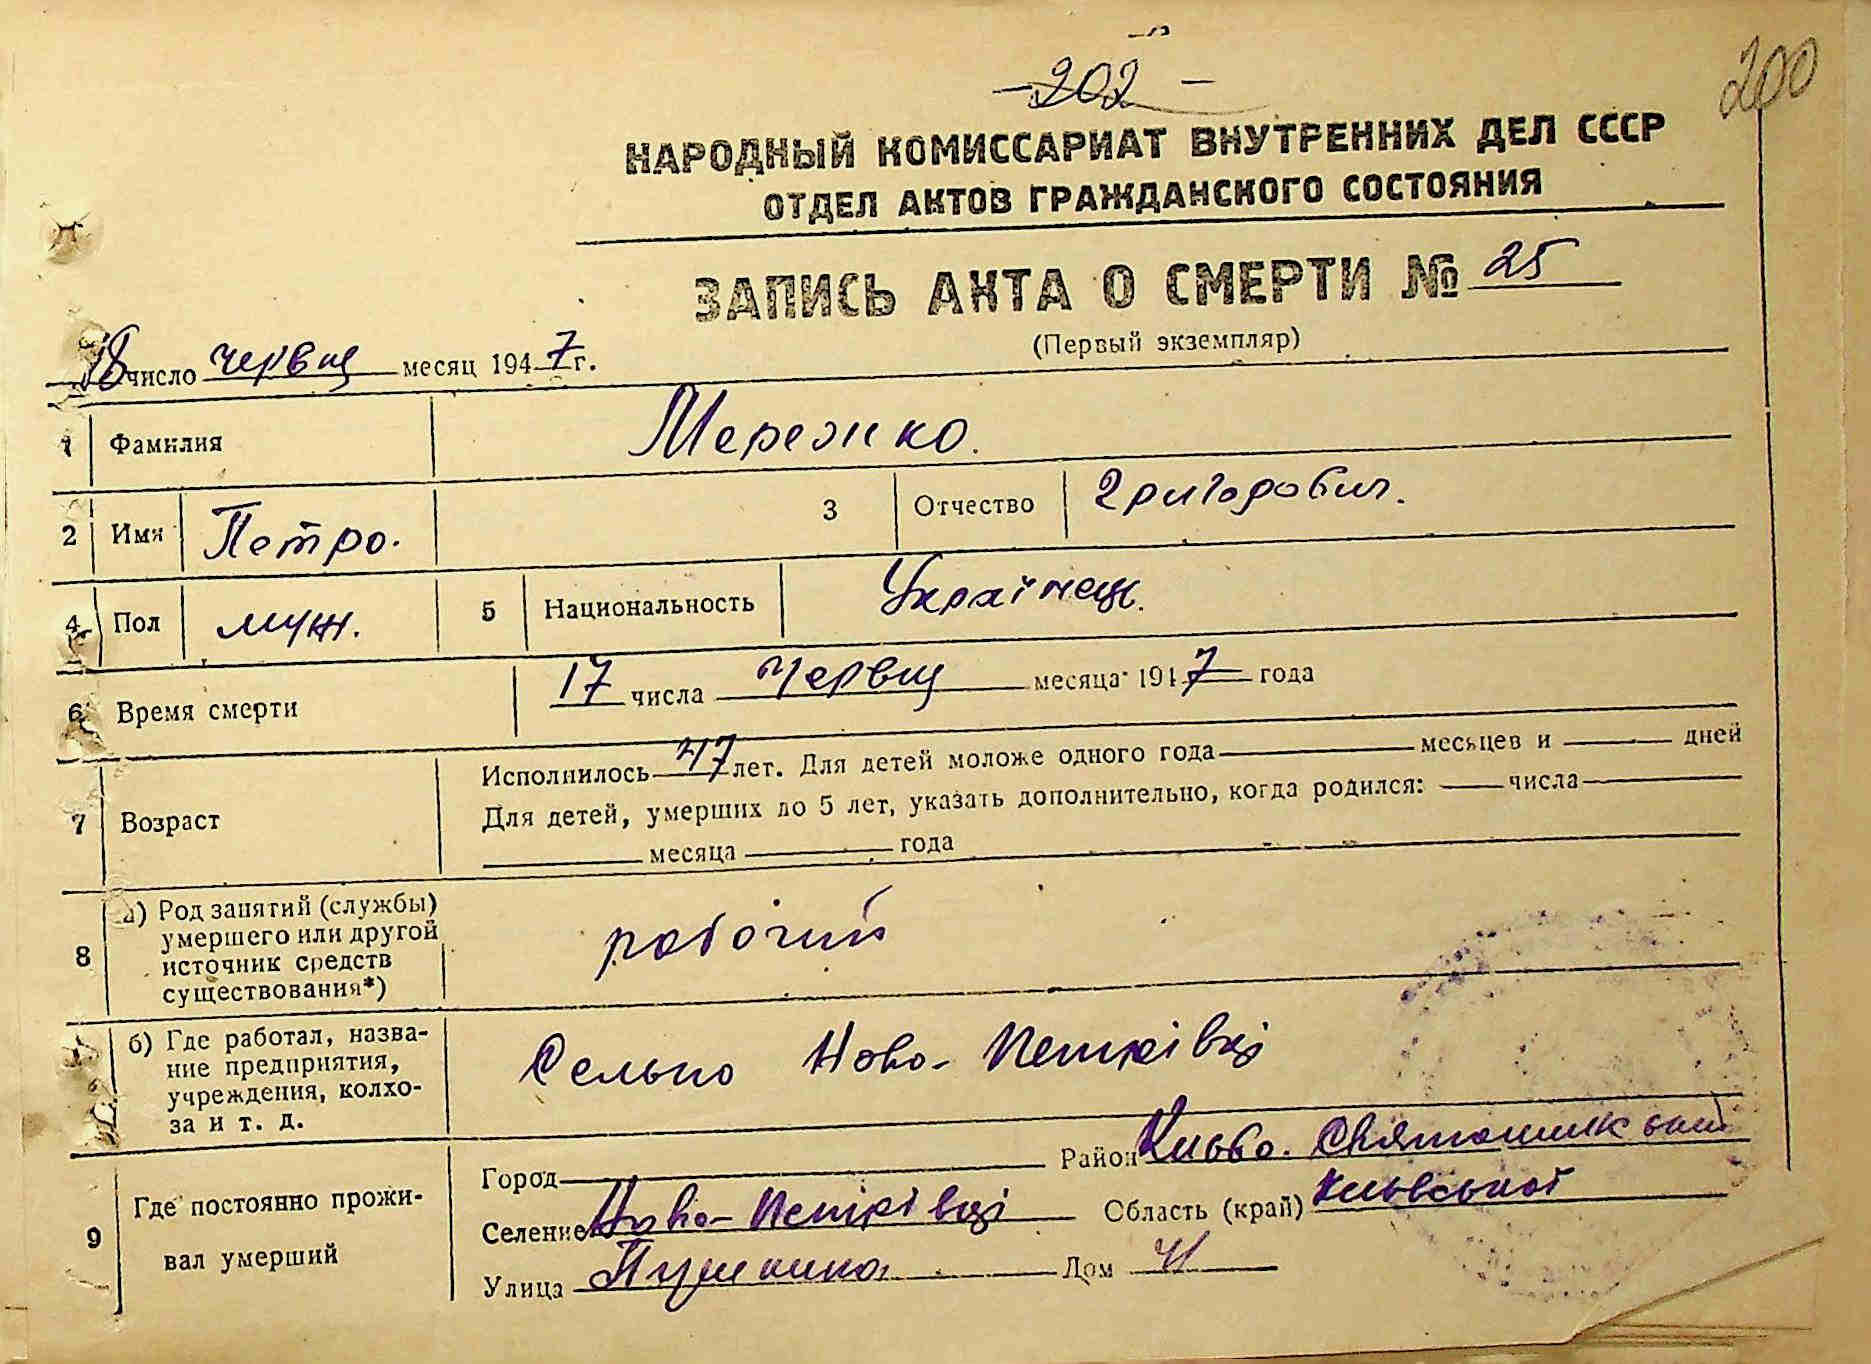 -202-
200
НАРОДНЫЙ КОМИССАРИАТ ВНУТРЕННИХ ДЕЛ СССР
ОТДЕЛ АКТОВ ГРАЖДАНСКОГО СОСТОЯНИЯ
ЗАПИСЬ АКТА О СМЕРТИ № 25
(Первый экземпляр)
18 число червця месяц 1947 г.
1 Фамилия Мережко.
2 Имя Петро. 3 Отчество Григорович.
4 Пол муж. 5 Национальность Українець.
6 Время смерти 17 числа Червця месяца 1947 года
7 Возраст Исполнилось 47 лет. Для детей моложе одного года месяцев и дней
Для детей, умерших до 5 лет, указать дополнительно, когда родился: числа
месяца года
8 а) Род занятий (службы) умершего или другой источник средств существования*) робочий
б) Где работал, название предприятия, учреждения, колхоза и т. д. Сельпо Ново-Петрівці
9 Где постоянно проживал умерший
Город Район Києво-Святошинський
Селение Ново-Петрівці Область (край) Київської
Улица Пушкина Дом